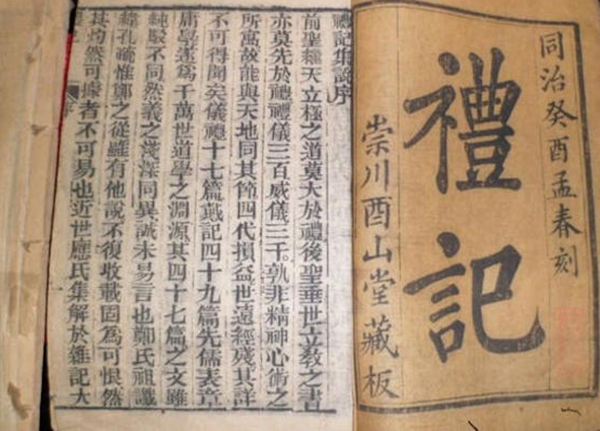 同治癸酉孟春刻
禮記
崇川酉山堂藏板
禮記集說序
前聖繼天立極之道莫大於禮後聖垂世立教之書
亦莫先於禮禮儀三百威儀三千孰非精神心術之
所寓故能與天地同其節四代損益世遠經殘其詳
不可得聞矣儀禮十七篇戴記四十九篇先儒表章
庸學遂為千萬世道學之淵源其四十七篇之文雖
純駁不同然義之淺深同異誠未易言也鄭氏祖讖
緯孔疏惟鄭之從雖有他說不復收載固為可恨然
其灼然可據者不可易也近世應氏集解於雜記大